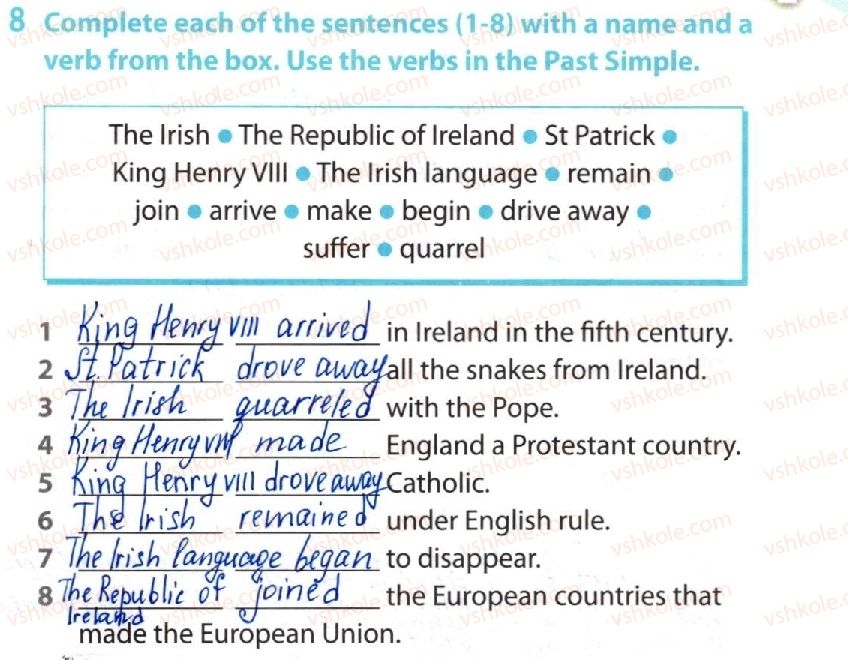 8 Complete each of the sentences (1-8) with a name and a
verb from the box. Use the verbs in the Past Simple.
The Irish • The Republic of Ireland • St Patrick •
King Henry VIII • The Irish language • remain •
join • arrive • make • begin • drive away •
suffer • quarrel
1 King Henry VIII arrived in Ireland in the fifth century.
2 St. Patrick drove away all the snakes from Ireland.
3 The Irish quarreled with the Pope.
4 King Henry VIII made England a Protestant country.
5 King Henry VIII drove away Catholic.
6 The Irish remained under English rule.
7 The Irish language began to disappear.
8 The Republic of Ireland joined the European countries that
made the European Union.
vshkole.com